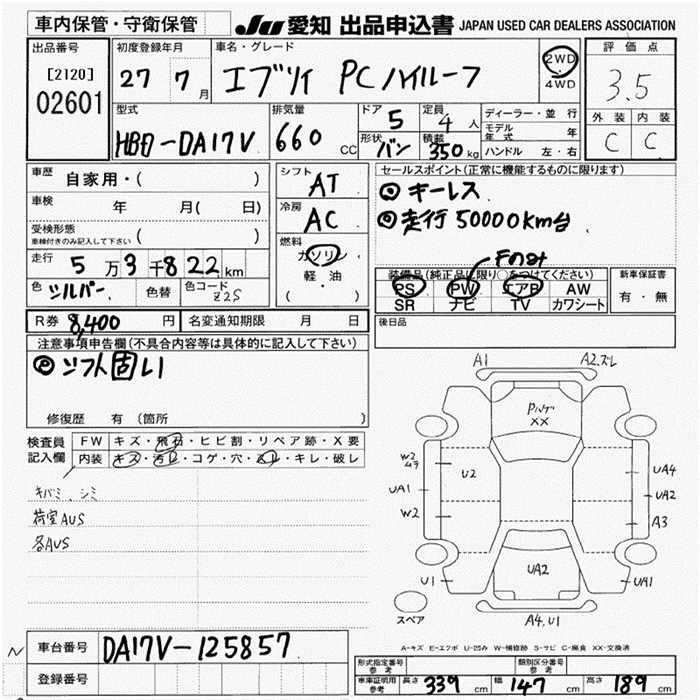 車内保管・守衛保管
JU 愛知 出品申込書 JAPAN USED CAR DEALERS ASSOCIATION
出品番号
[2120]
02601
初度登録年月
27 7月
車名・グレード
エブリイ PCハイルーフ
2WD
4WD
評価点
3.5
外装 内装
C C
型式
HBD-DA17V
排気量
660 CC
ドア 5
形状 バン
定員 4 人
積載 350 kg
ディーラー・並行
モデル年式 年
ハンドル 左・右
車歴 自家用・( )
車検 年 月( 日)
受検形態
車検付きのみ記入して下さい ( )
走行 5万3千822km
色 シルバー 色替 色コード Z2S
シフト AT
冷房 AC
燃料
ガソリン
軽・油
( )
セールスポイント(正常に機能するものに限ります)
キーレス
走行50000km台
Fのみ
装備品(純正品に限り○をつけてください)
PS PW エアB AW
SR ナビ TV カワシート
新車保証書
有・無
R券 8,400 円 名変通知期限 月 日
後日品
注意事項申告欄(不具合内容等は具体的に記入して下さい)
シフト固い
修復歴 有 (箇所 )
検査員記入欄
FW キズ・飛石・ヒビ割・リペア跡・X要
内装 キズ・汚レ・コゲ・穴・スレ・キレ・破レ
キバミ、シミ
荷室AUS
各AUS
A1 A2.ズレ
Pハゲ
XX
W2
ムラ
U2
UA4
UA1
UA2
W2
A3
U1
UA2
UA1
スペア
A4.U1
A-キズ E-エクボ U-凹み W-補修跡 S-サビ C-腐食 XX-交換済
車台番号 DA17V-125857
登録番号
型式指定番号 参考
類別区分番号 参考
車庫証明用 参考 長さ 339 cm 幅 147 cm 高さ 189 cm